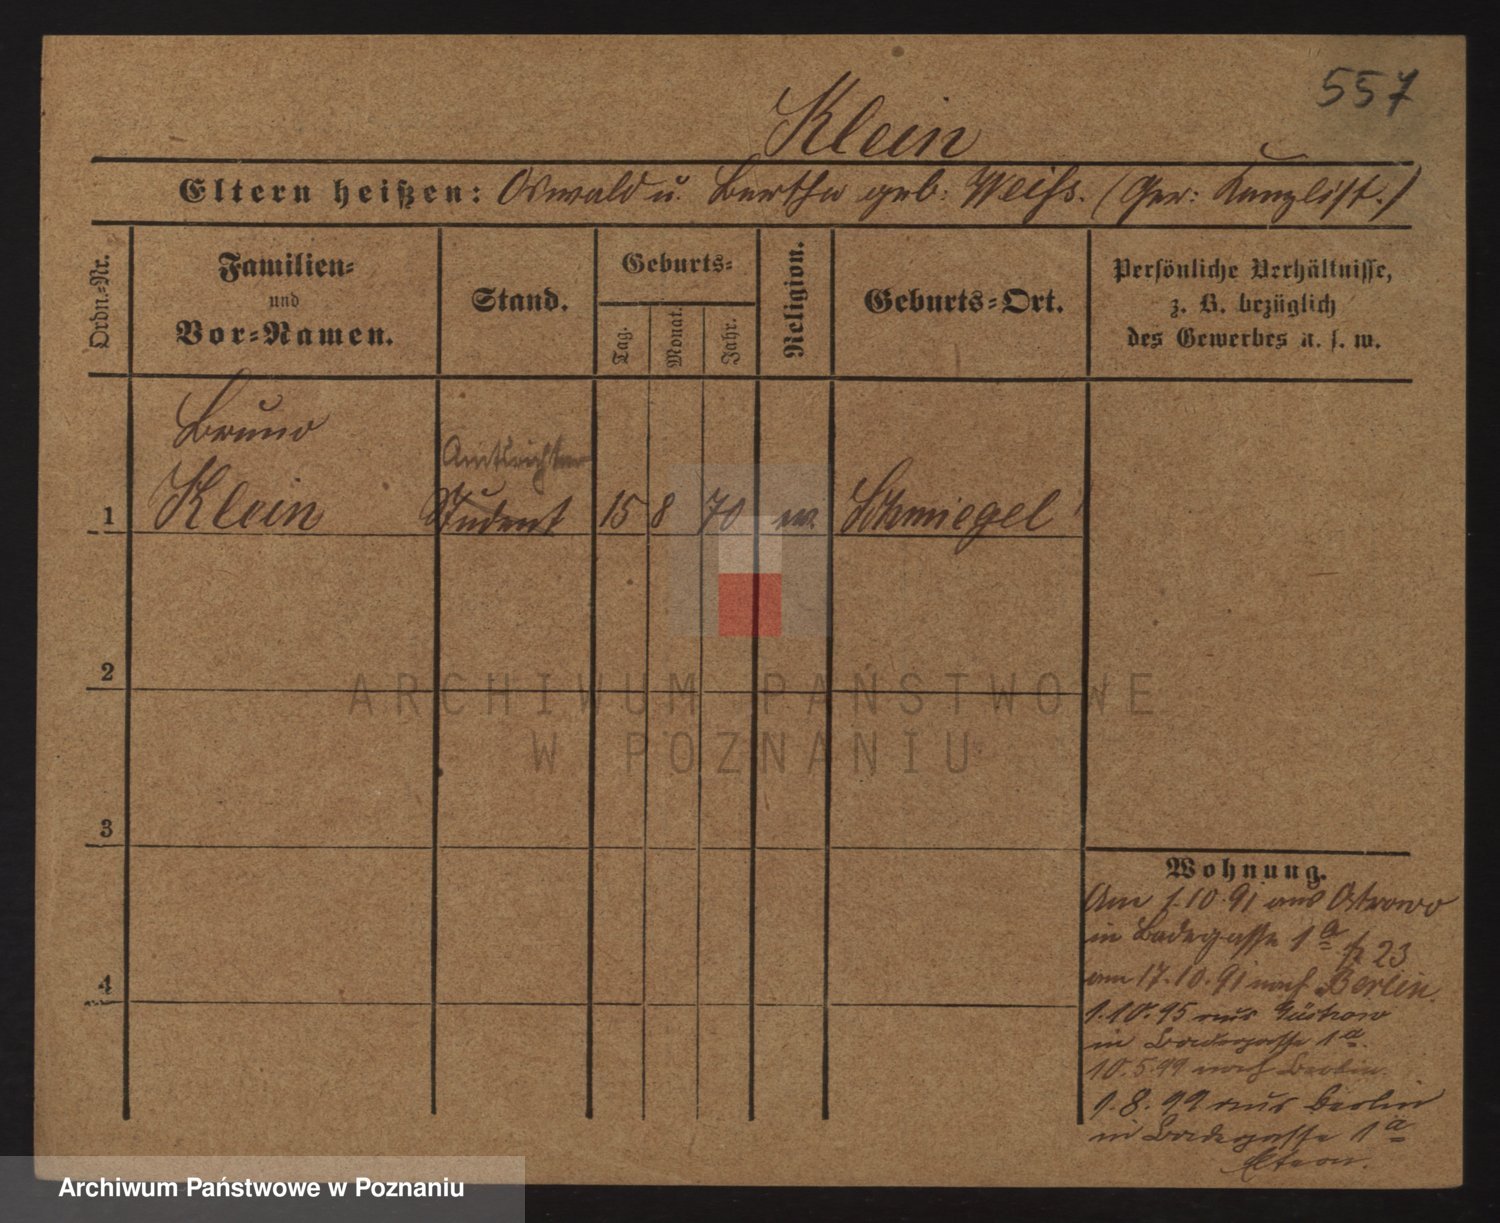 557
Klein
Eltern heißen: Oswald u. Bertha geb. Weiss. (Ger: Kanzlist.)
Ordn.-Nr.
Familien-
und
Vor-Namen.
Stand.
Geburts-
Tag.
Monat.
Jahr.
Religion.
Geburts-Ort.
Persönliche Verhältnisse,
z. B. bezüglich
des Gewerbes u. s. w.
Bruno
Amtsrichter
1 Klein Student 15 8 70 ev. Schmiegel
2
3
4
Wohnung.
Am 1.10.91 aus Ostrowo
in Badegasse 1a
23
am 17.10.91 nach Berlin.
1.10.95 aus Güstrow
in Badegasse 1a.
10.5.99 nach Berlin.
1.8.99 aus Berlin
in Badegasse 1a
Eltern.
ARCHIWUM PAŃSTWOWE
W POZNANIU
Archiwum Państwowe w Poznaniu